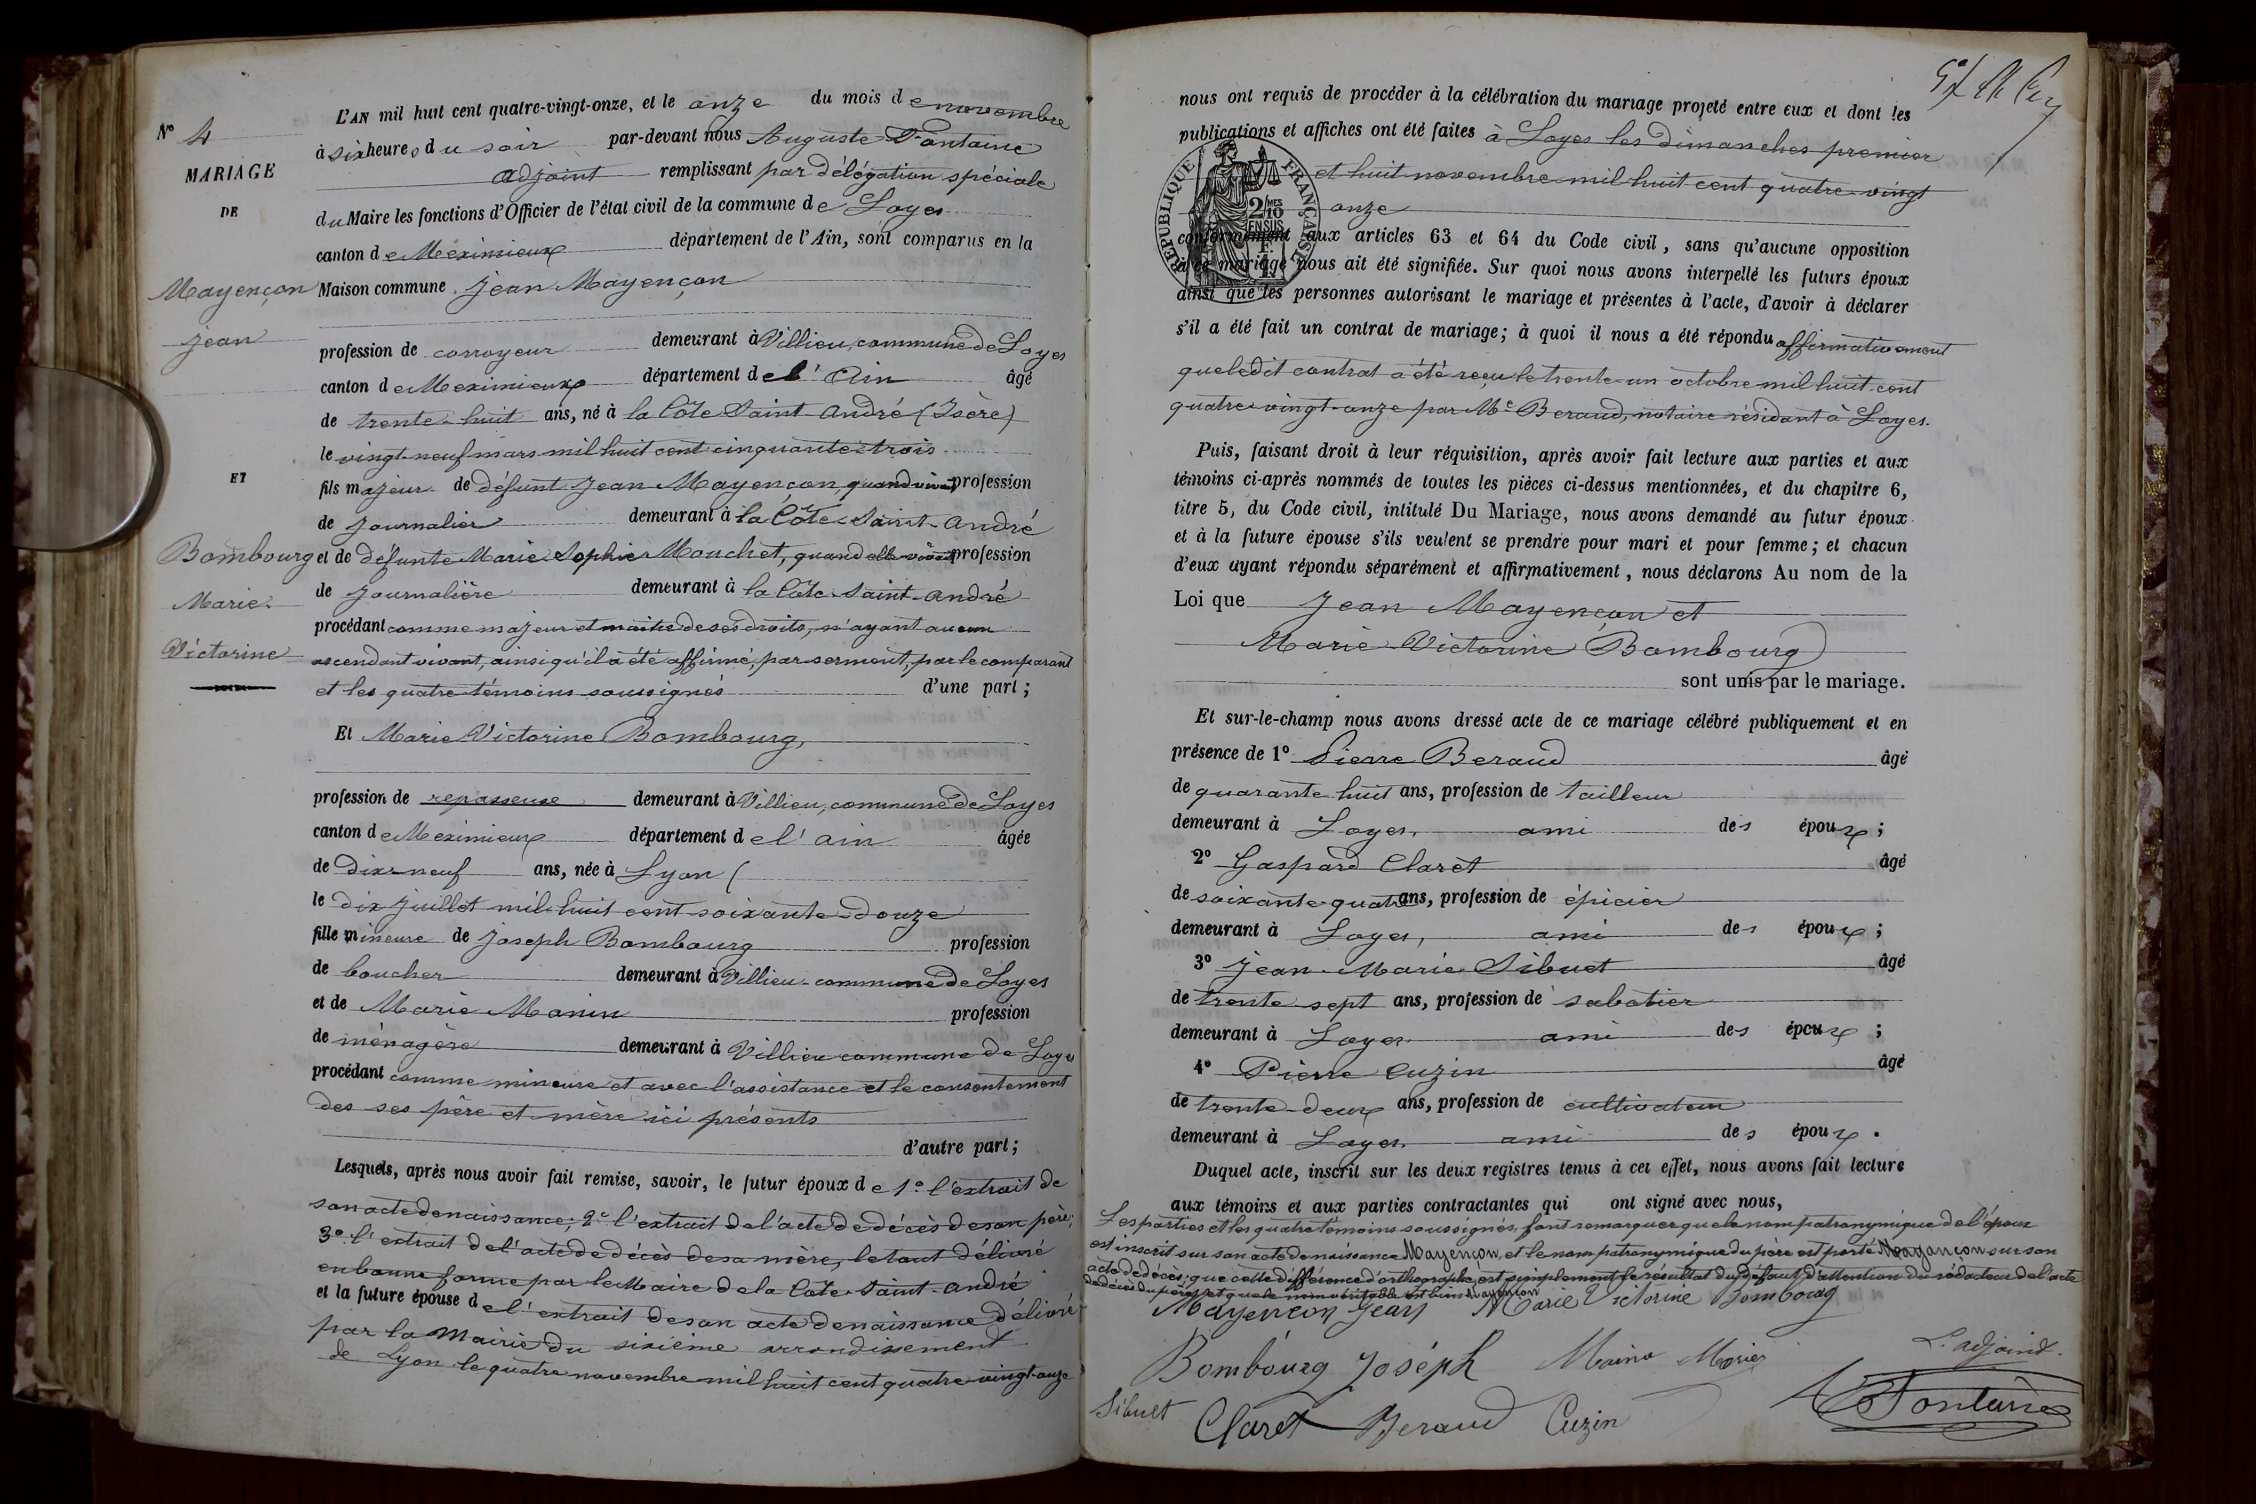 N° 4
MARIAGE
DE
Mayençon
Jean
ET
Bombourg
Marie
Victorine
L'AN mil huit cent quatre-vingt-onze, et le onze du mois de novembre
à six heures du soir par-devant nous Auguste Fontaine
adjoint remplissant par délégation spéciale
du Maire les fonctions d'Officier de l'état civil de la commune de Loyes
canton de Méximieux département de l'Ain, sont comparus en la
Maison commune Jean Mayençon
profession de corroyeur demeurant à Villieu, commune de Loyes
canton de Meximieux département de l'Ain âgé
de trente-huit ans, né à la Côte Saint-André (Isère)
le vingt-neuf mars mil huit cent cinquante-trois
fils majeur de défunt Jean Mayençon, quand vivait profession
de journalier demeurant à la Côte-Saint-André
et de défunte Marie Sophie Mouchet, quand elle vivait profession
de journalière demeurant à la Côte-Saint-André
procédant comme majeur et maître de ses droits, n'ayant aucun
ascendant vivant, ainsi qu'il a été affirmé, par serment, par le comparant
et les quatre témoins soussignés d'une part;
Et Marie Victorine Bombourg,
profession de repasseuse demeurant à Villieu, commune de Loyes
canton de Meximieux département de l'Ain âgée
de dix-neuf ans, née à Lyon (
le dix juillet mil huit cent soixante-douze
fille mineure de Joseph Bombourg profession
de boucher demeurant à Villieu-commune de Loyes
et de Marie Manin profession
de ménagère demeurant à Villieu commune de Loyes
procédant comme mineure et avec l'assistance et le consentement
des ses père et mère ici présents
d'autre part;
Lesquels, après nous avoir fait remise, savoir, le futur époux de 1° l'extrait de
son acte de naissance; 2° l'extrait de l'acte de décès de son père;
3° l'extrait de l'acte de décès de sa mère, le tout délivré
en bonne forme par le Maire de la Côte-Saint-André
et la future épouse de l'extrait de son acte de naissance délivré
par la Mairie du sixième arrondissement
de Lyon le quatre novembre mil huit cent quatre-vingt-onze
nous ont requis de procéder à la célébration du mariage projeté entre eux et dont les
publications et affiches ont été faites à Loyes les dimanches premier
et huit novembre mil huit cent quatre-vingt
onze
RÉPUBLIQUE FRANÇAISE
2/10 MES
EN SUS
conformément aux articles 63 et 64 du Code civil, sans qu'aucune opposition
à ce mariage nous ait été signifiée. Sur quoi nous avons interpellé les futurs époux
ainsi que les personnes autorisant le mariage et présentes à l'acte, d'avoir à déclarer
s'il a été fait un contrat de mariage; à quoi il nous a été répondu affirmativement
que ledit contrat a été reçu le trente-un octobre mil huit cent
quatre-vingt-onze par Me Beraud, notaire résidant à Loyes.
Puis, faisant droit à leur réquisition, après avoir fait lecture aux parties et aux
témoins ci-après nommés de toutes les pièces ci-dessus mentionnées, et du chapitre 6,
titre 5, du Code civil, intitulé Du Mariage, nous avons demandé au futur époux
et à la future épouse s'ils veulent se prendre pour mari et pour femme; et chacun
d'eux ayant répondu séparément et affirmativement, nous déclarons Au nom de la
Loi que Jean Mayençon et
Marie Victorine Bombourg
sont unis par le mariage.
Et sur-le-champ nous avons dressé acte de ce mariage célébré publiquement et en
présence de 1° Pierre Beraud âgé
de quarante-huit ans, profession de tailleur
demeurant à Loyes, ami des époux;
2° Gaspard Claret âgé
de soixante-quatre ans, profession de épicier
demeurant à Loyes, ami des époux;
3° Jean-Marie Sibuet âgé
de trente-sept ans, profession de sabotier
demeurant à Loyes ami des époux;
4° Pierre Cuzin âgé
de trente-deux ans, profession de cultivateur
demeurant à Loyes, ami des époux.
Duquel acte, inscrit sur les deux registres tenus à cet effet, nous avons fait lecture
aux témoins et aux parties contractantes qui ont signé avec nous,
Les parties et les quatre témoins soussignés, font remarquer que le nom patronymique de l'époux
est inscrit sur son acte de naissance Mayençon, et le nom patronymique du père est porté Mayançon sur son
acte de décès; que cette différence d'orthographe est simplement le résultat du défaut d'attention du rédacteur de l'acte
de décès du père, et que le nom véritable est bien Mayençon
Mayencon Jean Marie Victorine Bombourg
Bombourg Joséph Manin Marie L'adjoint.
Sibuet Claret Beraud Cuzin Fontaine